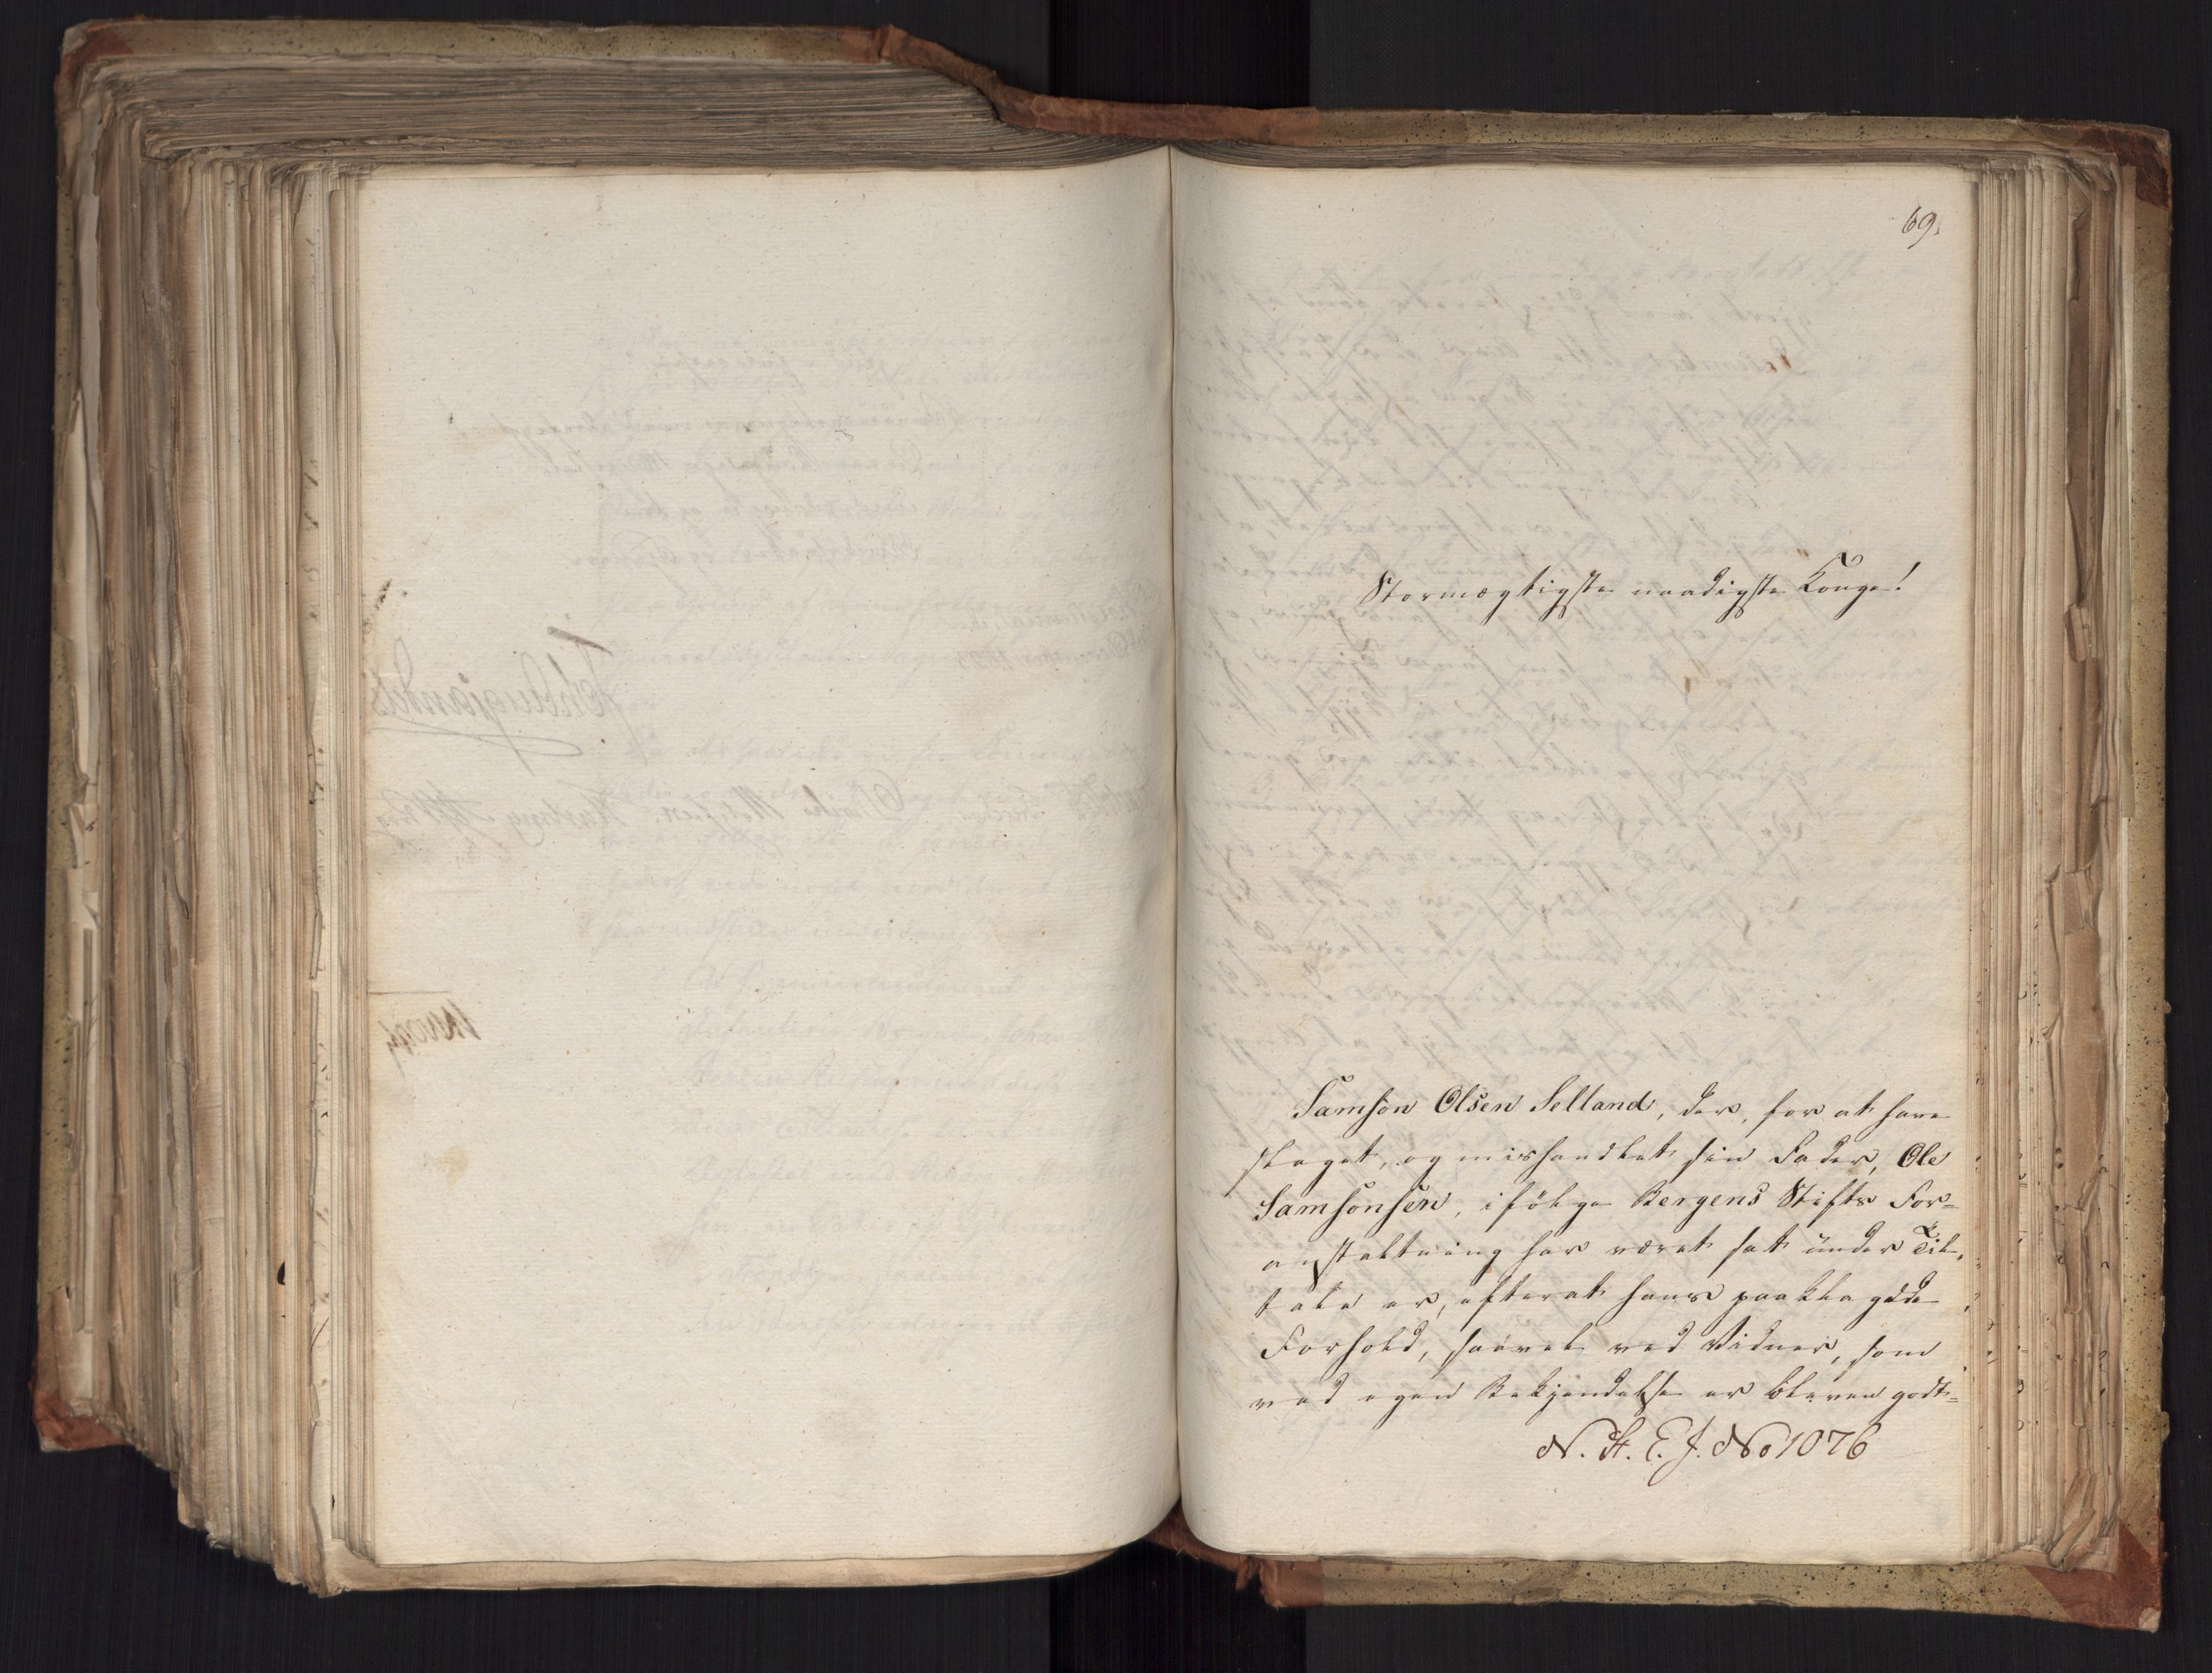 69.
Stormægtigste naadigste Konge!
Samson Olsen Selland, der, for at have
slaget, og mishandlet sin Fader, Ole
Samsonsen, ifölge Bergens Stifts For=
anstaltning har været sat under Til=
tale er, efterat hans paaklagede
Forhold, saavel ved Vidner, som
ved egen Bekjendelse er bleven godt=
N. St. E. J. No 1076